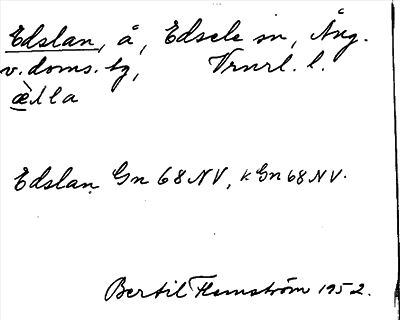 Edslan, å, Edsele sn, Ång.
v. doms. tg, Vrnrl. l.
æ̀lla
Edslan Gn 68 NV, k Gn 68 NV.
Bertil Flemström 1952.